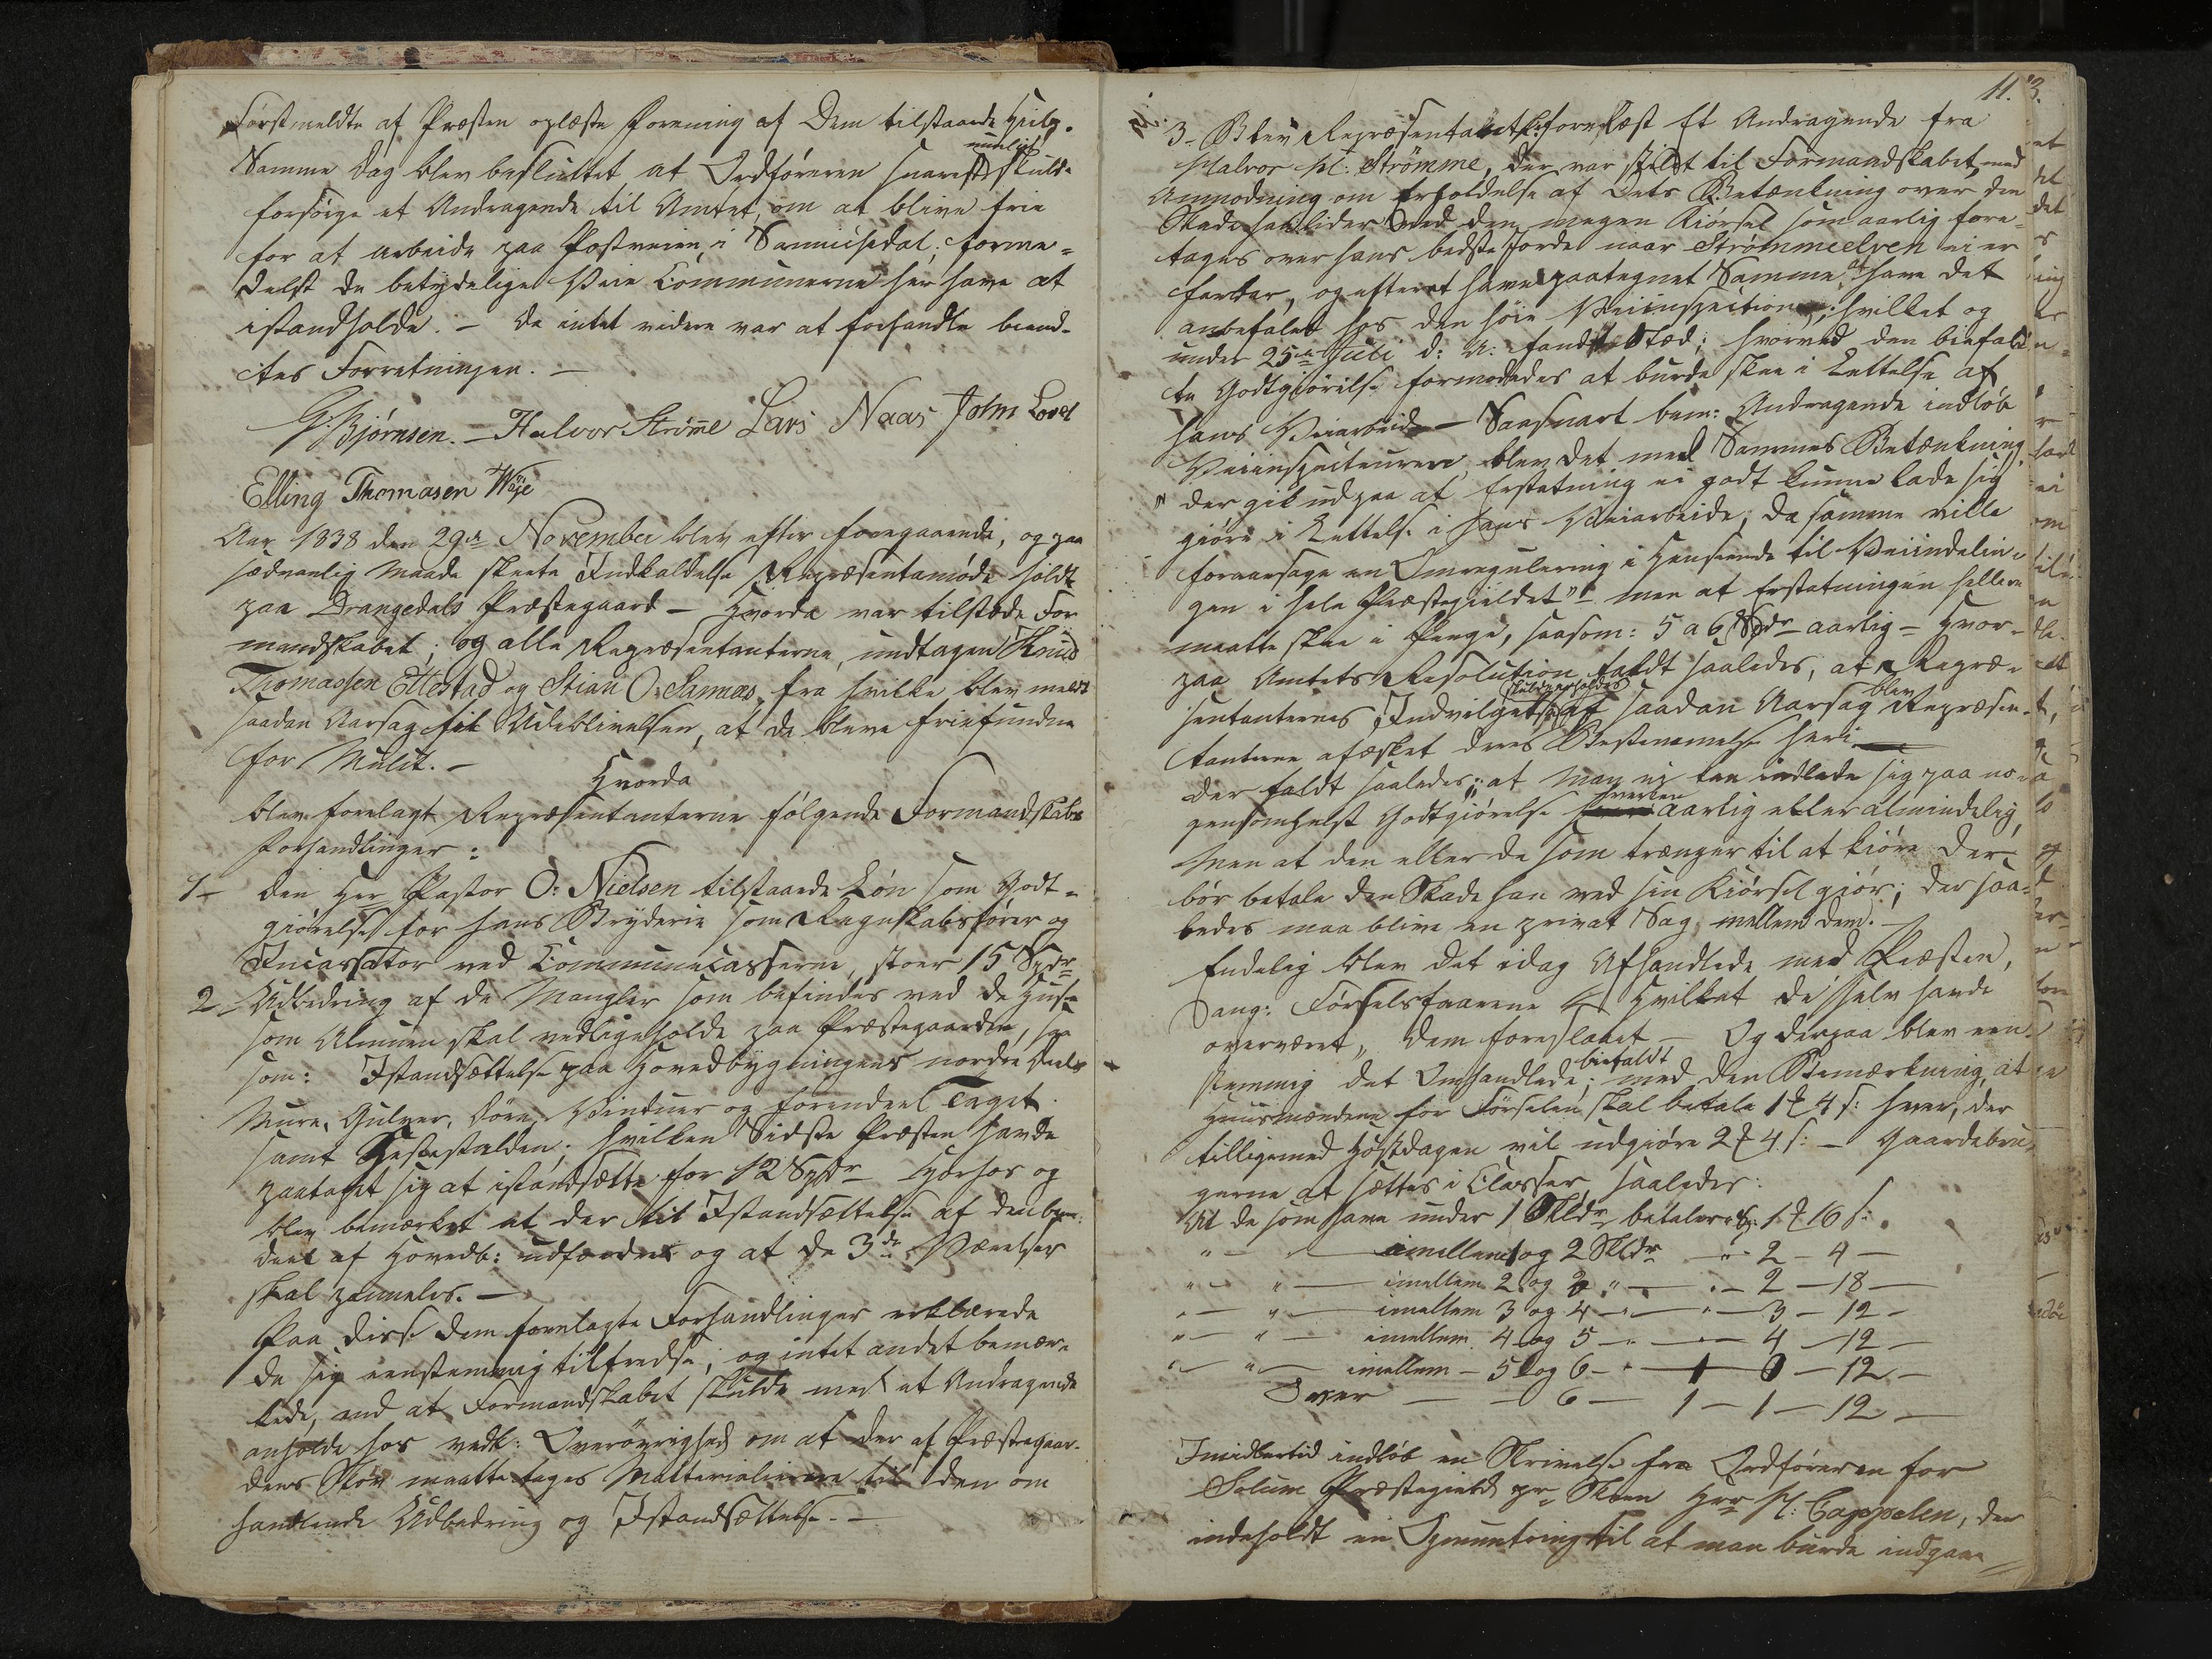 Førstmeldte af Præsten oplæste Forening af Dem tilstaaede Hielp.
Samme Dag blev besluttet at Ordføreren snarest mueligt skulde
forsørge et Andragende til Amtet, om at blive frie
for at arbeide paa Postveien i Sannikedal; forme-
delst de betydelige Veie Communerne her have at
istandholde. - Da intet videre var at forhandle beend-
tes Forretningen. -
G. Bjørnsen. - Halvor Strøme Lars Naas John Lovel
Elling Thomasen Wøje
Aar 1838 den 29de November blev efter foregaaende, og paa
sædvanlig Maade skeete Indkaldelse Repræsentamøde holdt
paa Drangedals Præstegaard - Hvorda var tilstæde For
mandskabet; og alle Repræsentanterne, undtagen Knud
Thomassen Ettestad og Stian O. Sannes, fra hvilke blev meldt
saadan Aarsag til Udeblivelsen, at de bleve friefundne
for Mulct. -
Hvorda
blev forelagt Repræsentanterne følgende Formandskabs
Forhandlinger:
1- Den Herr Pastor O: Nielsen tilstaaede Løn som Godt-
giørelse for hans Bryderie som Regnskabsfører og
Incassator ved Communecasserne, stoer 15 Spdr
2- Udbedring af de Mangler som befindes ved de Huse
som Almuen skal vedligeholde paa Præstegaarden, saa
som: Istandsættelse paa Hovedbygningens nordre Deels
Mure, Gulver, Døre, Vinduer og forendeel Taget.
samt Hestestalden; hvilken Sidste Præsten havde
paataget sig at istandsætte for 12 Spdr - Hvorhos og
blev bemærket at der til Istandsættelse af den bem:
deel af Hovedb: udfordres og at de 3de Værelser
skal panneles. -
Paa disse dem forelagte Forhandlinger erklærede
de sig eenstemmig tilfredse; og intet andet bemær-
kede, end at Formandskabet skulde med et Andragende
anholde hos vedk: Overøvrighed om at der af Præstegaar-
dens Skov maatte tages Matterialierne til den om
handlende Udbedring og Istandsættelse. -
11.
3.
3- Blev Repræsentantsk: forelæst Et Andragende fra
Halvor H: Strømme, der var stilet til Formandskabet, med
Anmodning om Erholdelse af Dets Betænkning over den
Skade han lider ved den megen Kiørsel som aarlig fore-
tages over hans bedste Jorde naar Strømmeelven ei er
farbar, og efter at have paategnet Samme, at have det
anbefalet hos den høie Veiinspection; hvilket og
under 25de Juli d: A: fandt Stæd; hvorved den biefald-
te Godtgiørelse formodedes at burde skee i Lettelse af
hans Veiarbeide - Saasnart bem: Andragende indløb
Veiinspecteuren, blev det med Sammes Betænkning,
" der gik ud paa at Erstatning ei godt kunne lade sig
giøre i Lettelse i hans Veiarbeide, da samme ville
foraarsage en Omregulering i Henseende til Veiindelin-
gen i hele Præstegieldet" - men at Erstatningen hellere
maatte skee i Penge, saasom: 5 a 6 Spdr aarlig - Hvor-
paa Amtets Resolution faldt saaledes, at Repræ-
sentanternes Indvilgelse skulde indhentes af saadan Aarsag blev Repræsen-
tanterne afæsket deres Bestemmelse heri
der faldt saaledes; at Man ei kan indlade sig paa no-
gensomhelst Godtgiørelse hverken aarlig eller almindelig,
Men at den eller de som trænger til at kiøre der
bør betale den Skade han ved sin Kiørsel giør; der saa-
ledes maa blive en privat Sag mellem dem. -
Endelig blev det idag Afhandlede med Præsten,
ang: Førselsfaarene hvilket de selv havde
overværet, dem foreslaaet - Og derpaa blev een-
stemmig det Omhandlede biefaldt; med den Bemærkning, at
Huusmændene for Førselen skal betale 1 # 4 s: hver, der
tilligemed Høstdagen vil udgiøre 2 # 4 s: - Gaardbru-
gerne at sættes i Classer, saaledes:
At de som have under 1 Skldr betaler 1 # 16 s:.
" - imellem 1 og 2 Skldr - " - 2 - 4 -
" - " - imellem 2 og 3 " - " - 2 - 18 -
" - " - imellem 3 og 4 - " - " - 3 - 12 -
" - " - imellem 4 og 5 - " - 4 - 12 -
" - " - imellem - 5 og 6 - " - 1 0 - 12 -
Over - - 6 - 1 - 1 - 12 -
Imidlertid indløb en Skrivelse fra Ordføreren for
Solum Præstegield pr Skien Herr H: Cappelen, der
indeholdt en Opmuntring til at man burde indgaae